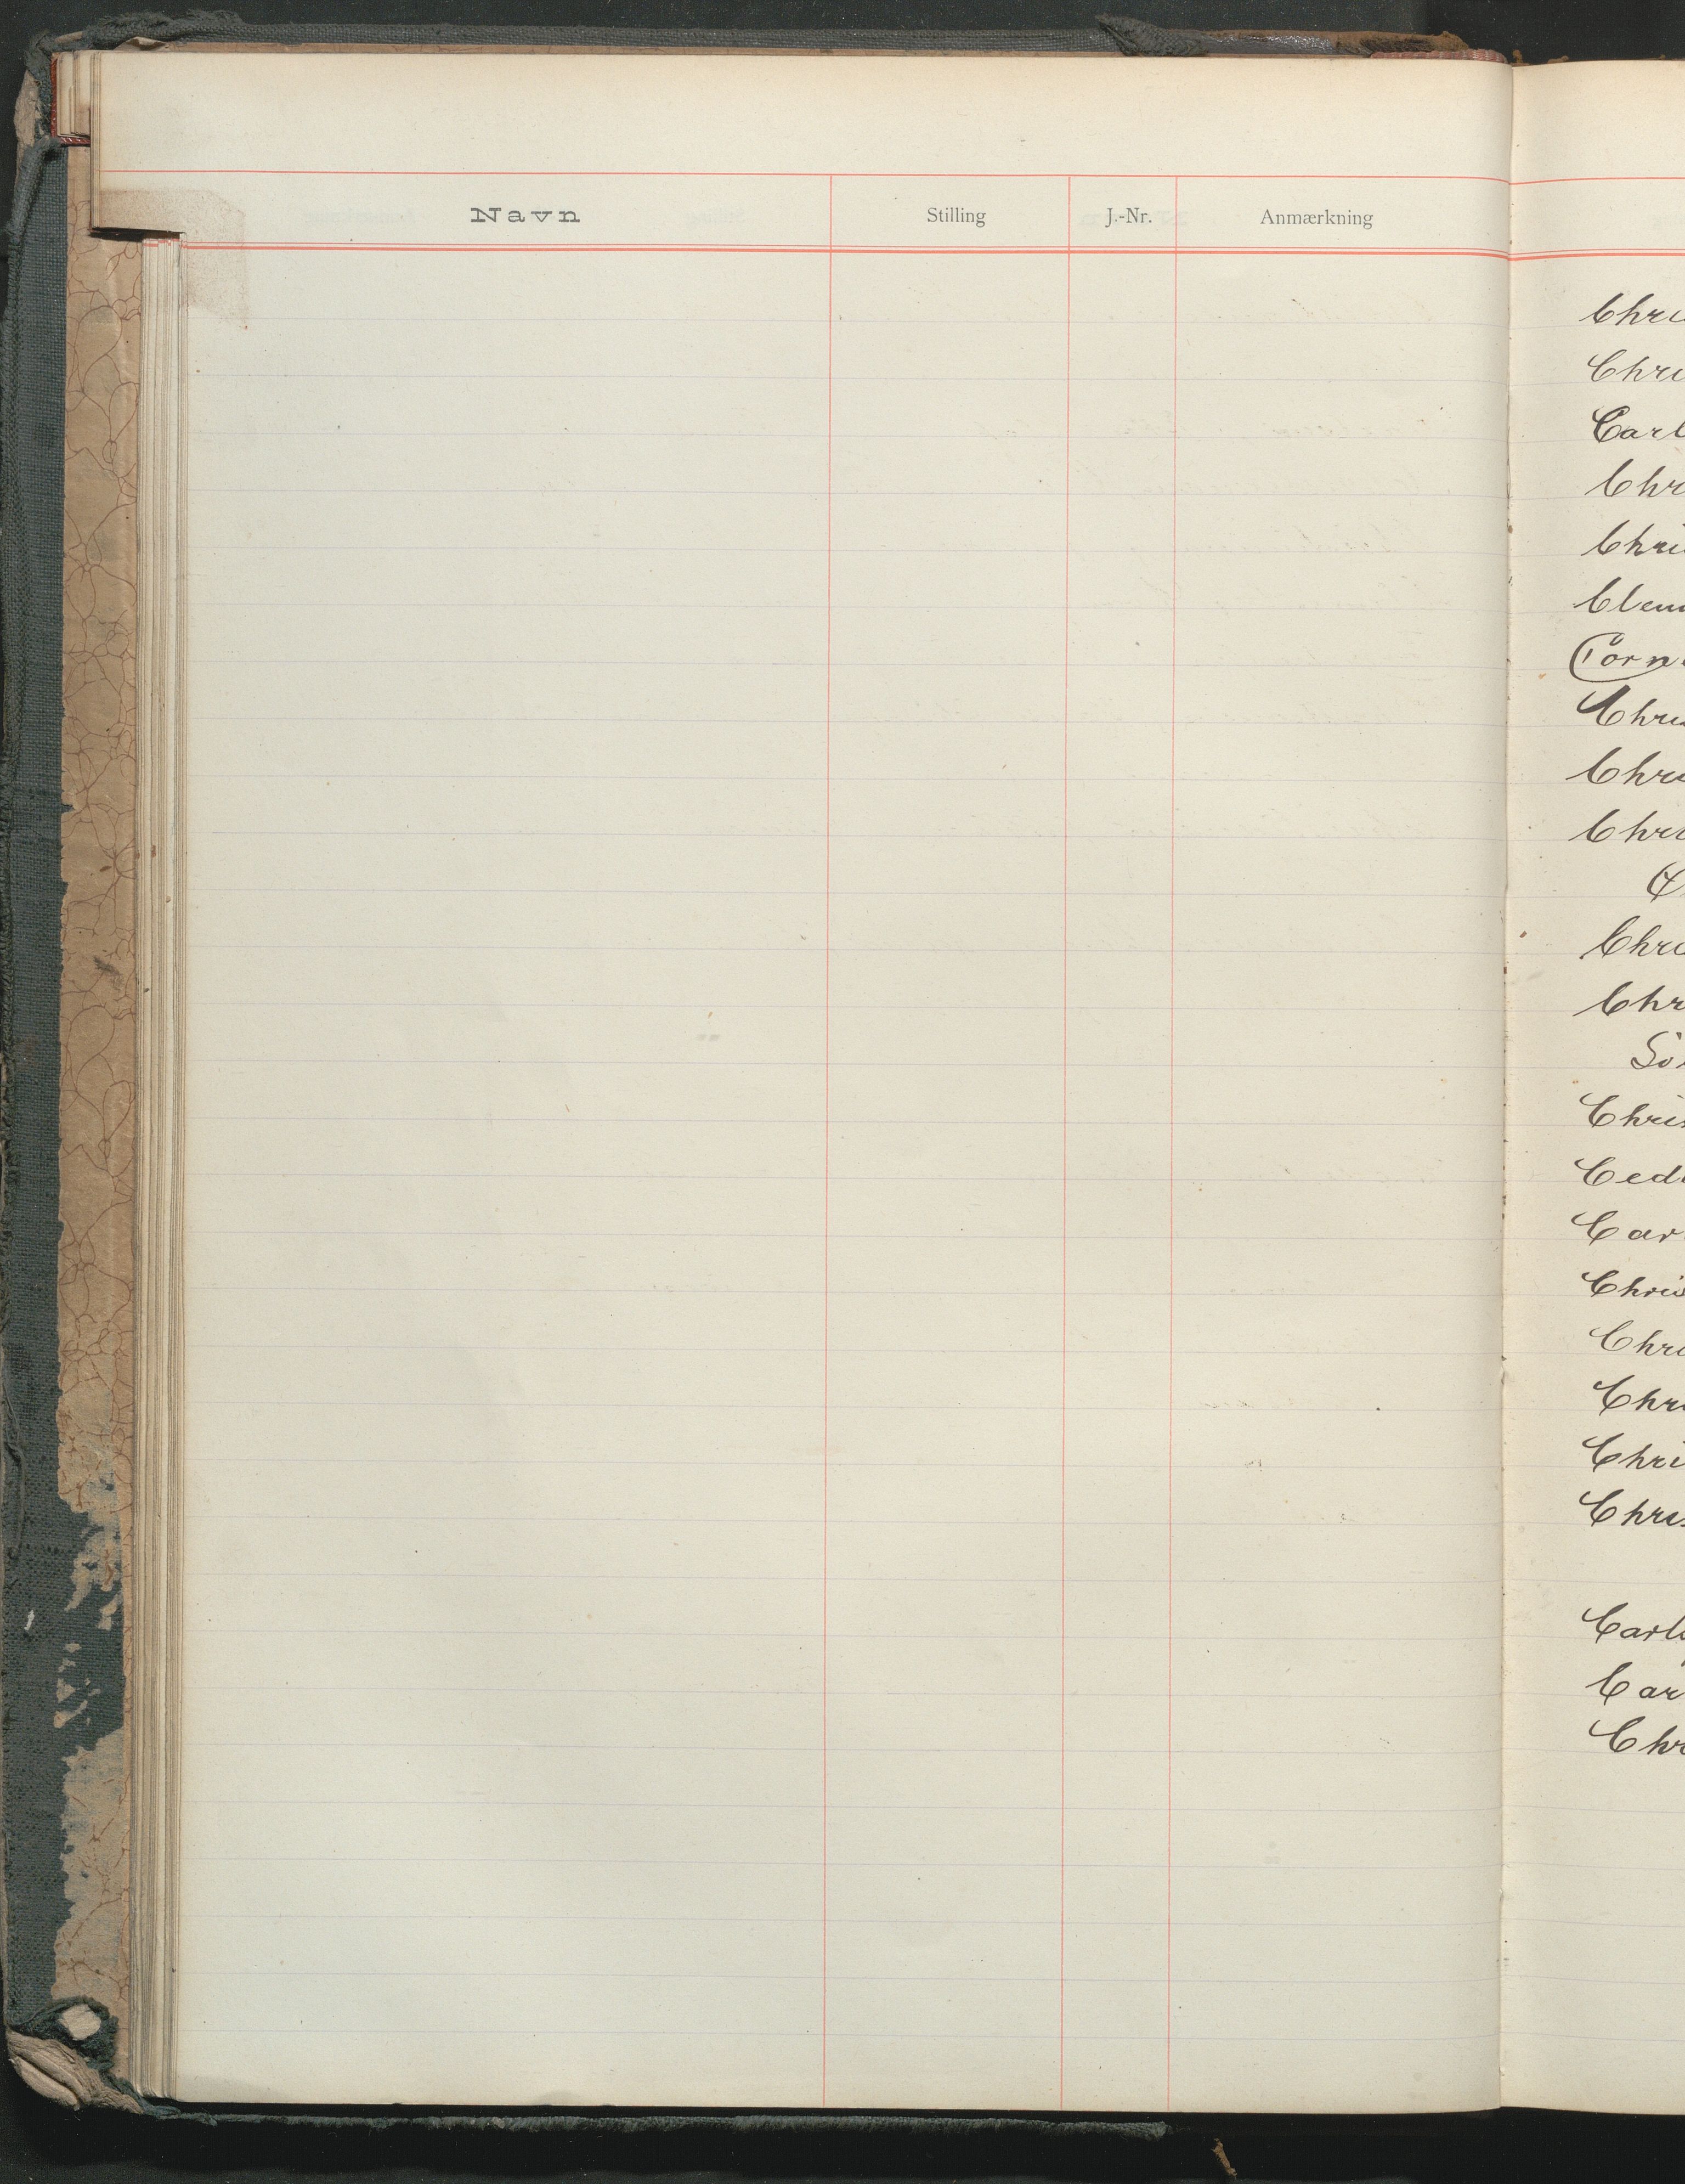 Navn Stilling J.-Nr. Anmærkning
Chri
Chri
Carl
Chr
Chri
Clem
Corn
Chri
Chri
Chri
Chri
Chr
Sö
Chris
Ced
Car
Chris
Chri
Chri
Chri
Chris
Carl
Car
Chr